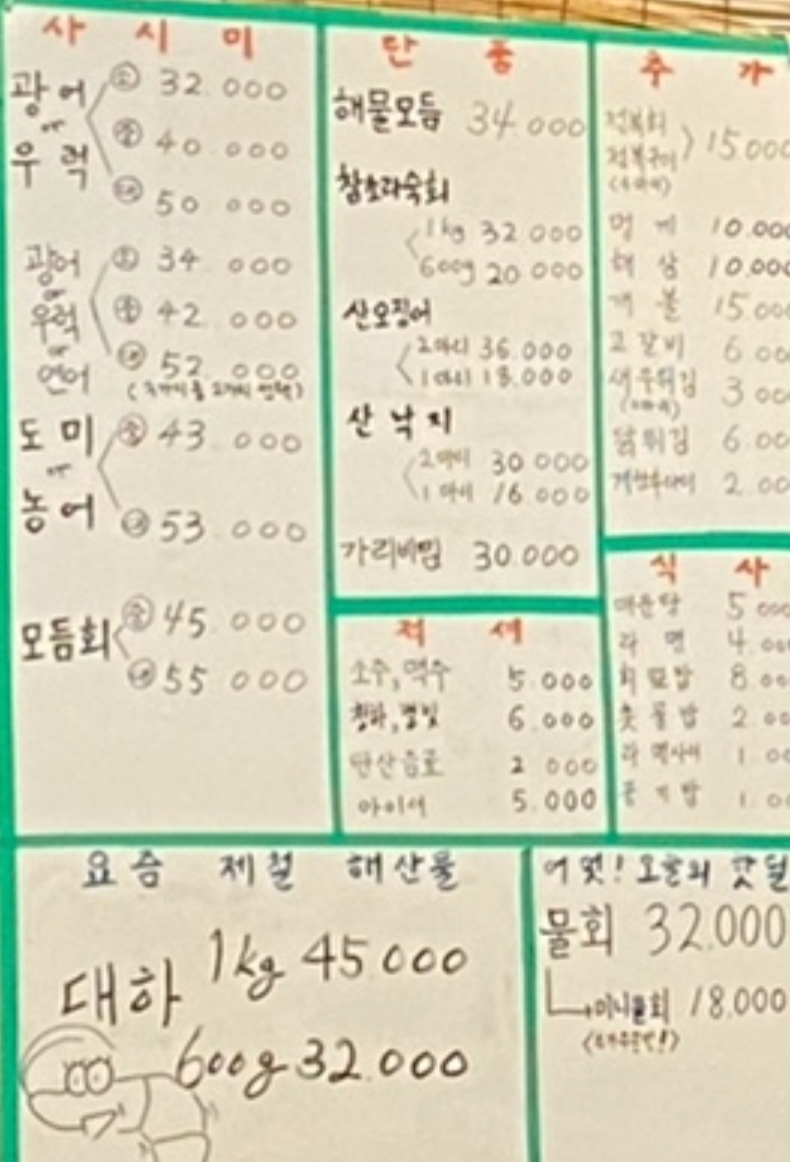 사시미
광어 or 우럭
소 32.000
중 40.000
대 50.000
광어 or 우럭 or 연어
소 34.000
중 42.000
대 52.000
도미 or 농어
중 43.000
대 53.000
모듬회
중 45.000
대 55.000
단품
해물모듬 34.000
참소라숙회
1kg 32.000
600g 20.000
산오징어
2마리 36.000
1마리 18.000
산낙지
2마리 30.000
1마리 16.000
가리비찜 30.000
적셔
소주,맥주 5.000
청하,별빛 6.000
탄산음료 2.000
아이셔 5.000
추가
전복회
전복구이
15.000
멍게 10.000
해삼 10.000
개불 15.000
고갈비 6.00
새우튀김 3.00
닭튀김 6.00
2.00
식사
매운탕 5.000
라면 4.00
회덮밥 8.00
2.00
라면사리 1.00
공기밥 1.00
요즘 제철 해산물
대하 1kg 45.000
600g 32.000
어멋! 오늘의 핫딜
물회 32.000
미니물회 18.000